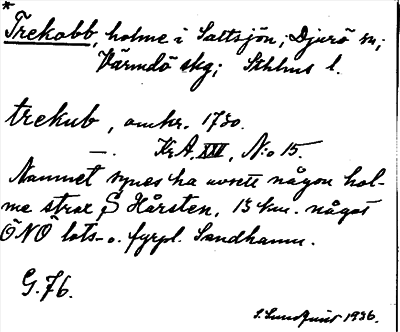 *
Trekobb, holme i Saltsjön, Djurö sn;
Värmdö skg; Sthlms l.
trekub, omkr. 1730.
—. KrA, XVI, N:o 15.
Namnet synes ha avsett någon hol-
me strax S Hårsten, 15 km. något
ÖNÖ lots- o. fyrpl. Sandhamn.
G. 76.
1936.